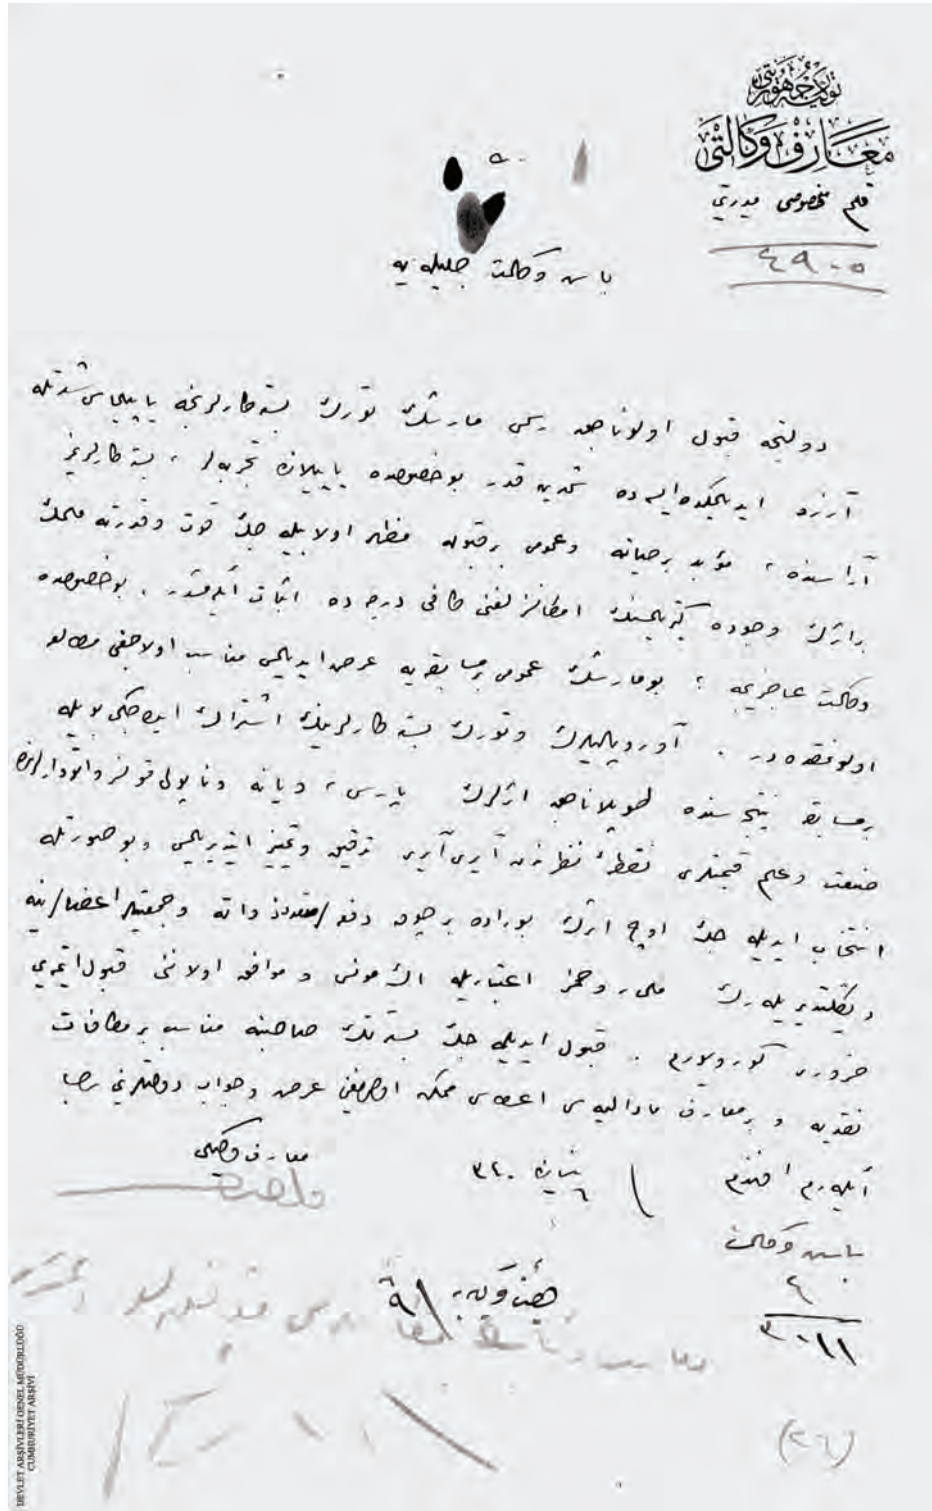 توركیه جمهوریتی
معارف وكالتی
قلم مخصوص مدیریتی
٤٩٠٥
باش وكالت جلیله یه
دولتجه قبول اولوناجق رسمی مارشك تورك بسته كارلرنجه یاپیلماسی شدتله
آرزو ایدیلمكده ایسه ده شمدی یه قدر بو خصوصده یاپیلان تجربه لر ، بسته كارلریمز
آراسنده ، مؤبد بر حیاته وعمومی بر قبوله مظهر اولابیله جك قوت وقدرته مالك
بر اثرك وجوده كتیریلمسنك امكانسزلغنی كافی درجه ده اثبات ایله مشدر . بو خصوصده
وكالت عاجزیمجه ؛ بو مارشك عمومی بر مسابقه یه عرض ایدیلمسی مناسب اولاجغی مطالعه
اولونمقده در . آوروپالیلرك وتورك بسته كارلرینك اشتراك ایده جكی بویله
بر مسابقه نتیجه سنده طوپلاناجق اثرلرك پارس ، ویانه وناپولی قونسرواتوارلرنجه
صنعت وعلم قیمتلری نقطۀ نظرندن آیری آیری تدقیق وتمییز ایتدیریلمسی وبو صورتله
انتخاب ایدیله جك اوچ اثرك بوراده بر چوق دفعه لر متعدد ذواته وجمعیتلر اعضالرینه
دیكلتدیریله رك ملی روحمز اعتباریله اك مونس و موافق اولاننی قبول ایتمه یی
ضروری كورویورم . قبول ایدیله جك بسته نك صاحبنه مناسب بر مكافات
نقدیه و بر معارف مادالیه سی اعطاسی ممكن اولدیغنی عرض وجواب دولتلرینی رجا
ایله رم افندم
٦
٣٢٠
معارف وكیلی
باش وكالت
٤
٣٠١١
هیئت وكیله یه
٩
(٢٦)
DEVLET ARŞİVLERİ GENEL MÜDÜRLÜĞÜ
CUMHURİYET ARŞİVİ